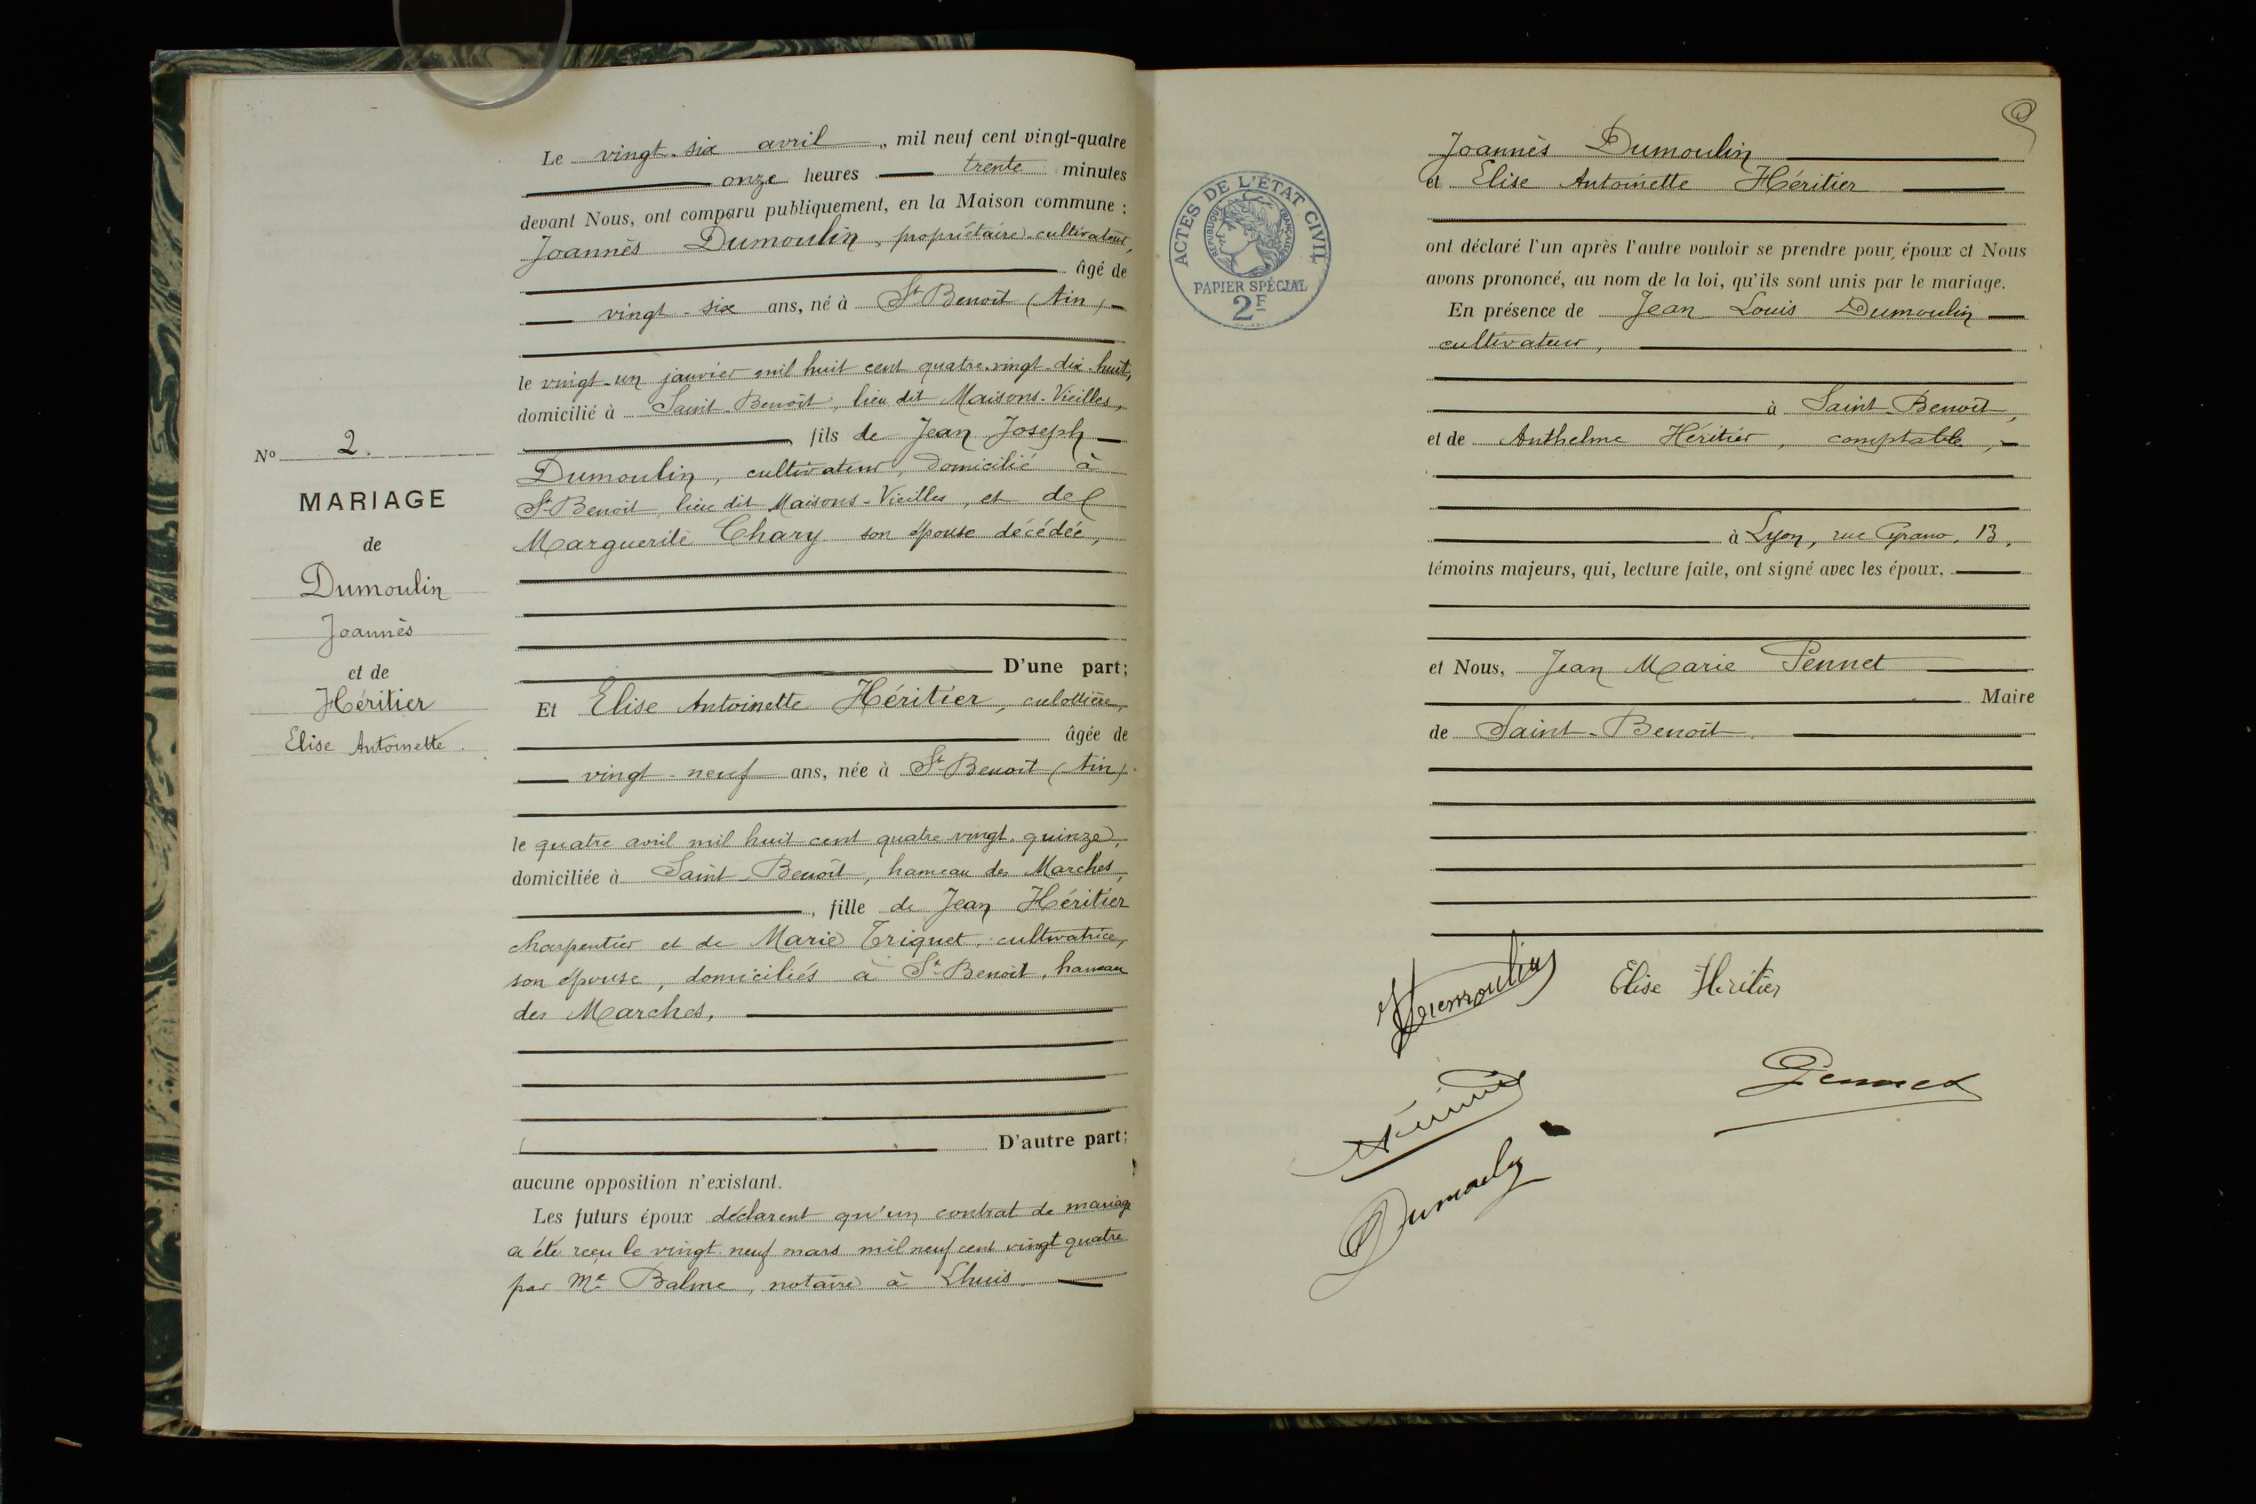 Le vingt-six avril, mil neuf cent vingt-quatre
onze heures trente minutes
devant Nous, ont comparu publiquement, en la Maison commune :
Joannès Dumoulin, propriétaire-cultivateur,
âgé de
vingt-six ans, né à St Benoît (Ain)
le vingt-un janvier mil huit cent quatre-vingt-dix-huit,
domicilié à Saint-Benoît, lieu dit Maisons-Vieilles,
, fils de Jean Joseph
Dumoulin, cultivateur, domicilié à
St-Benoît, lieu dit Maisons-Vieilles, et de
Marguerite Chary son épouse décédée,
D'une part;
Et Elise Antoinette Héritier, culottière,
âgée de
vingt-neuf ans, née à St-Benoît (Ain)
le quatre avril mil huit cent quatre vingt-quinze,
domiciliée à Saint-Benoît, hameau des Marches,
, fille de Jean Héritier
charpentier et de Marie Triquet, cultivatrice,
son épouse, domiciliés à St-Benoît, hameau
des Marches.
D'autre part;
aucune opposition n'existant.
Les futurs époux déclarent qu'un contrat de mariage
a été reçu le vingt-neuf mars mil neuf cent vingt quatre
par Me Balme, notaire à Lhuis.
No 2.
MARIAGE
de
Dumoulin
Joannès
et de
Héritier
Elise Antoinette.
ACTES DE L'ÉTAT CIVIL
RÉPUBLIQUE FRANÇAISE
PAPIER SPÉCIAL
2F
Joannès Dumoulin
et Elise Antoinette Héritier
ont déclaré l'un après l'autre vouloir se prendre pour époux et Nous
avons prononcé, au nom de la loi, qu'ils sont unis par le mariage.
En présence de Jean Louis Dumoulin
cultivateur,
à Saint-Benoît,
et de Anthelme Héritier, comptable,
à Lyon, rue 13,
témoins majeurs, qui, lecture faite, ont signé avec les époux,
et Nous, Jean Marie Pennet
Maire
de Saint-Benoît.
Dumoulin
Elise Héritier
Pennet
Dumoulin